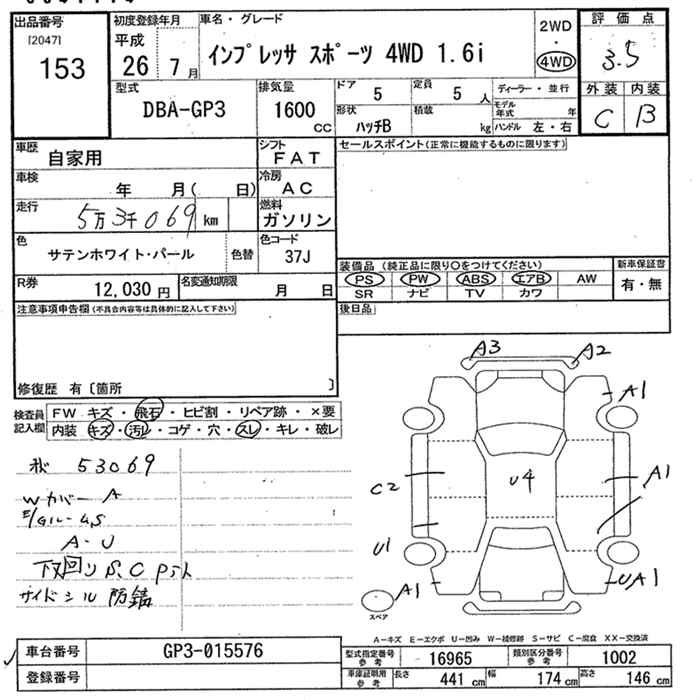 出品番号
[2047]
153
初度登録年月
平成
26年 7月
車名・グレード
インプレッサ スポーツ 4WD 1.6i
2WD
・
4WD
評価点
3.5
外装 内装
C B
型式
DBA-GP3
排気量
1600
CC
ドア 5
定員 5 人
形状 ハッチB
積載 kg
ディーラー・並行
モデル年式 年
ハンドル 左・右
車歴 自家用
シフト FAT
セールスポイント(正常に機能するものに限ります)
車検 年 月( 日)
冷房 AC
走行 5万3千069 km
燃料 ガソリン
色 サテンホワイト・パール
色替
色コード 37J
装備品 (純正品に限り○をつけてください)
PS PW ABS エアB AW
SR ナビ TV カワ
新車保証書
有・無
R券 12,030円
名変通知期限 月 日
注意事項申告欄(不具合内容等は具体的に記入して下さい)
後日品
修復歴 有〔箇所 〕
検査員記入欄
FW キズ・飛石・ヒビ割・リペア跡・×要
内装 キズ・汚レ・コゲ・穴・スレ・キレ・破レ
53069
Wカバー A
A-U
下回り S.C
サイドシル 防錆
A3 A2
A1
C2
U4
A1
U1
A1
UA1
スペア
A-キズ E-エクボ U-凹み W-補修跡 S-サビ C-腐食 XX-交換済
車台番号 GP3-015576
登録番号
型式指定番号参考 16965
類別区分番号参考 1002
車庫証明用参考
長さ 441 cm
幅 174 cm
高さ 146 cm